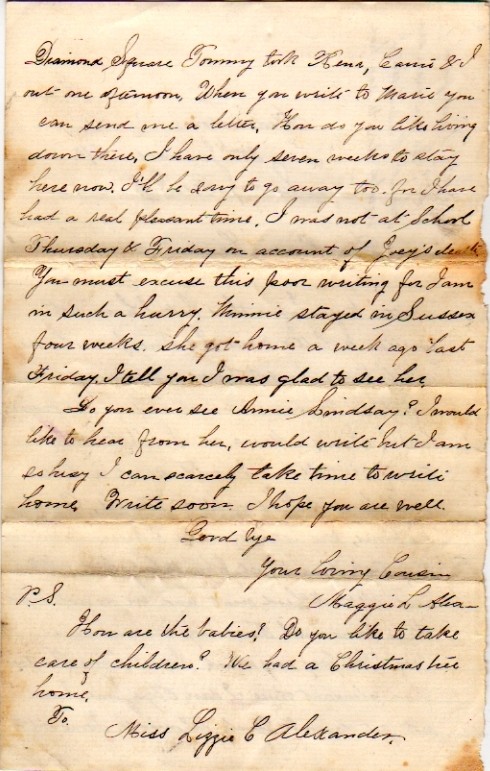 Diamond Square Tommy took Rena, Carrie & I
out one afternoon, When you write to Marie you
can send me a letter, How do you like living
down there, I have only seven weeks to stay
here now. I'll be sory to go away too. for I have
had a real pleasant time. I was not at School
Thursday & Friday on account of death
You must excuse this poor writing for I am
in such a hurry. Minnie stayed in Sussex
four weeks. she got home a week ago last
Friday. I tell you I was glad to see her.
Do you ever see Annie Lindsay? I would
like to hear from her, would write but I am
so busy I can scarcely take time to write
home, Write soon. I hope you are well.
Good bye
Your loving Cousin
Maggie L Alex
P.S.
How are the babies? Do you like to take
care of children? We had a Christmas tree
home,
To.
Miss Lizzie C Alexander.